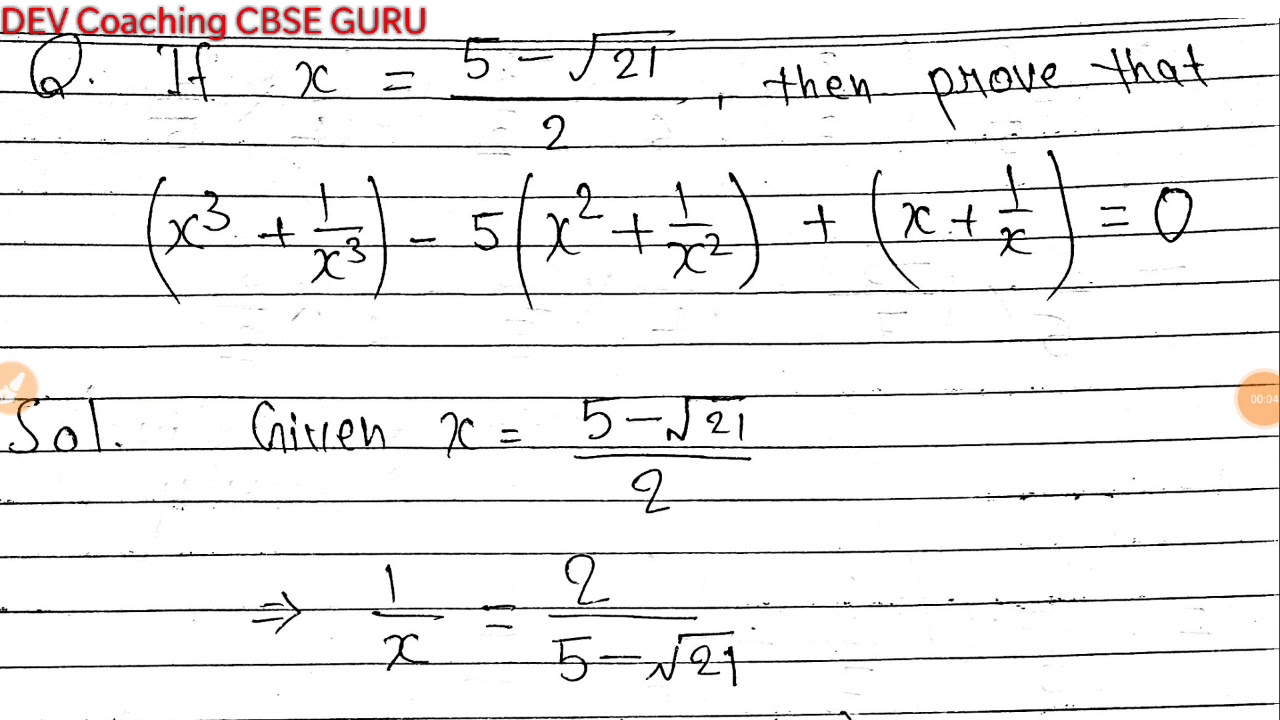 DEV Coaching CBSE GURU
Q. If x = (5 - √21)/2, then prove that
(x³ + 1/x³) - 5(x² + 1/x²) + (x + 1/x) = 0
Sol. Given x = (5 - √21)/2
⇒ 1/x = 2/(5 - √21)
00:04